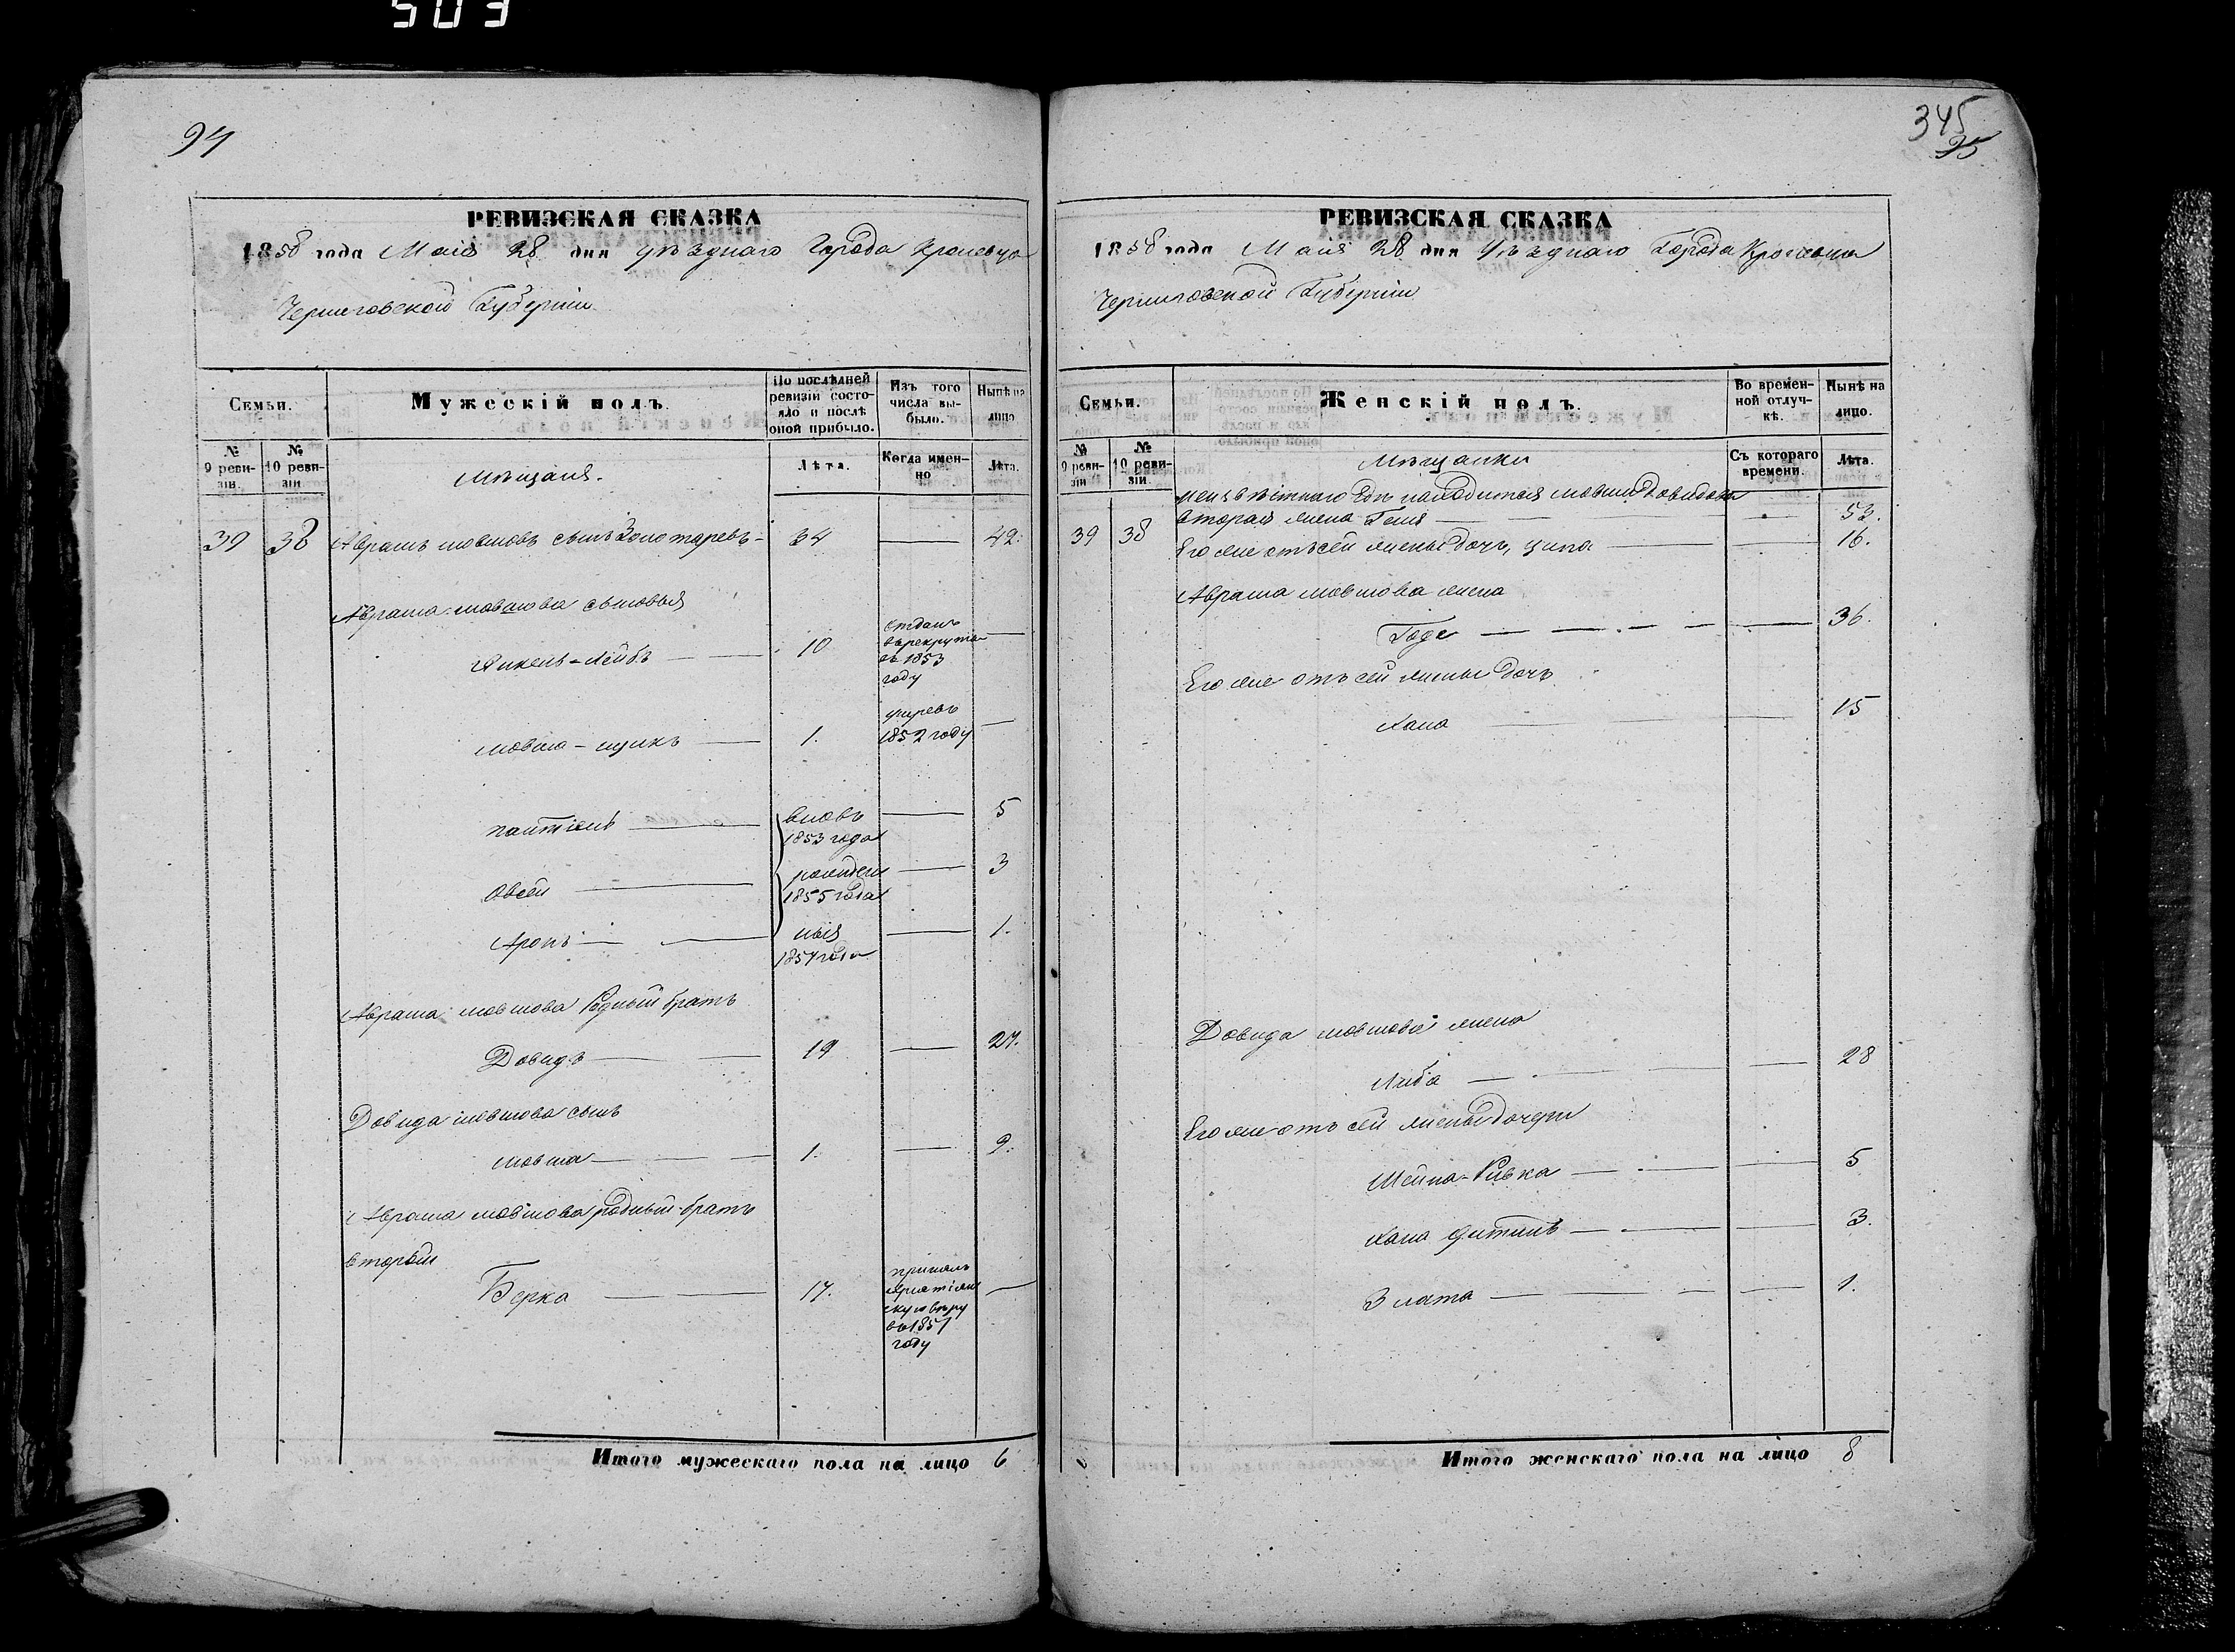 503
94
РЕВИЗСКАЯ СКАЗКА
1858 года Маія 28 дня уѣзднаго Города Кролевца
Черниговской Губерніи
Семьи.
Мужескій полъ.
По послѣдней ревизіи состояло и послѣ оной прибыло.
Изъ того числа выбыло.
Нынѣ на лицо
№ 9 ревизіи.
№ 10 ревизіи
Мѣщаня.
Лѣта.
Когда именно
Лѣта.
39 38 Абрамъ мовшовъ сынъ Золотаревъ - 34 — 42.
Абрама мовшова сыновья
Янкель-Лейбъ — 10 отданъ в рекрута въ 1853 году —
мовша - — 1. умеръ 1852 году —
— вновь 1853 года — 5
Овсей — рожден 1855 года — 3
Аронъ — ныя 1857 года — 1.
Абрама мовшова Родный братъ
Довидъ — 19 — 27.
Довида мовшова сынъ
мовша — 1. — 9.
Абрама мовшова родный братъ
вторый
Берка — 17. принялъ христіанскую вѣру въ 1851 году —
Итого мужескаго пола на лицо 6
345
95
РЕВИЗСКАЯ СКАЗКА
1858 года Маія 28 дня Уѣзднаго Города Кролевца
Черниговской Губерніи
Семьи.
Женскій полъ.
Во временной отлучкѣ.
Нынѣ на лицо.
№ 9 ревизіи
№ 10 ревизіи.
Мѣщанки
Съ котораго времени.
Лѣта.
неизвѣстнаго гдѣ находится мовши Довидова
39 38 вторая жена Геня — 53.
Его же отъ сей жены дочь, Ципа — 16.
Абрама мовшова жена
Годе — 36.
Его же отъ сей жены дочь
Хана — 15
Довида мовшова жена
Либа — 28
Его же отъ сей жены дочери
Шейна-Ривка — 5
Хана — 3.
Злата — 1.
Итого женскаго пола на лицо 8